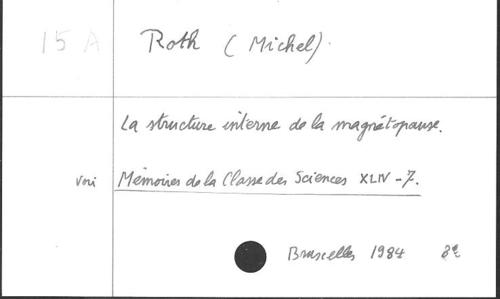 15 A Roth (Michel).
La structure interne de la magnétopause.
Voir Mémoires de la Classe des Sciences XLIV - 7.
Bruxelles 1984 8º